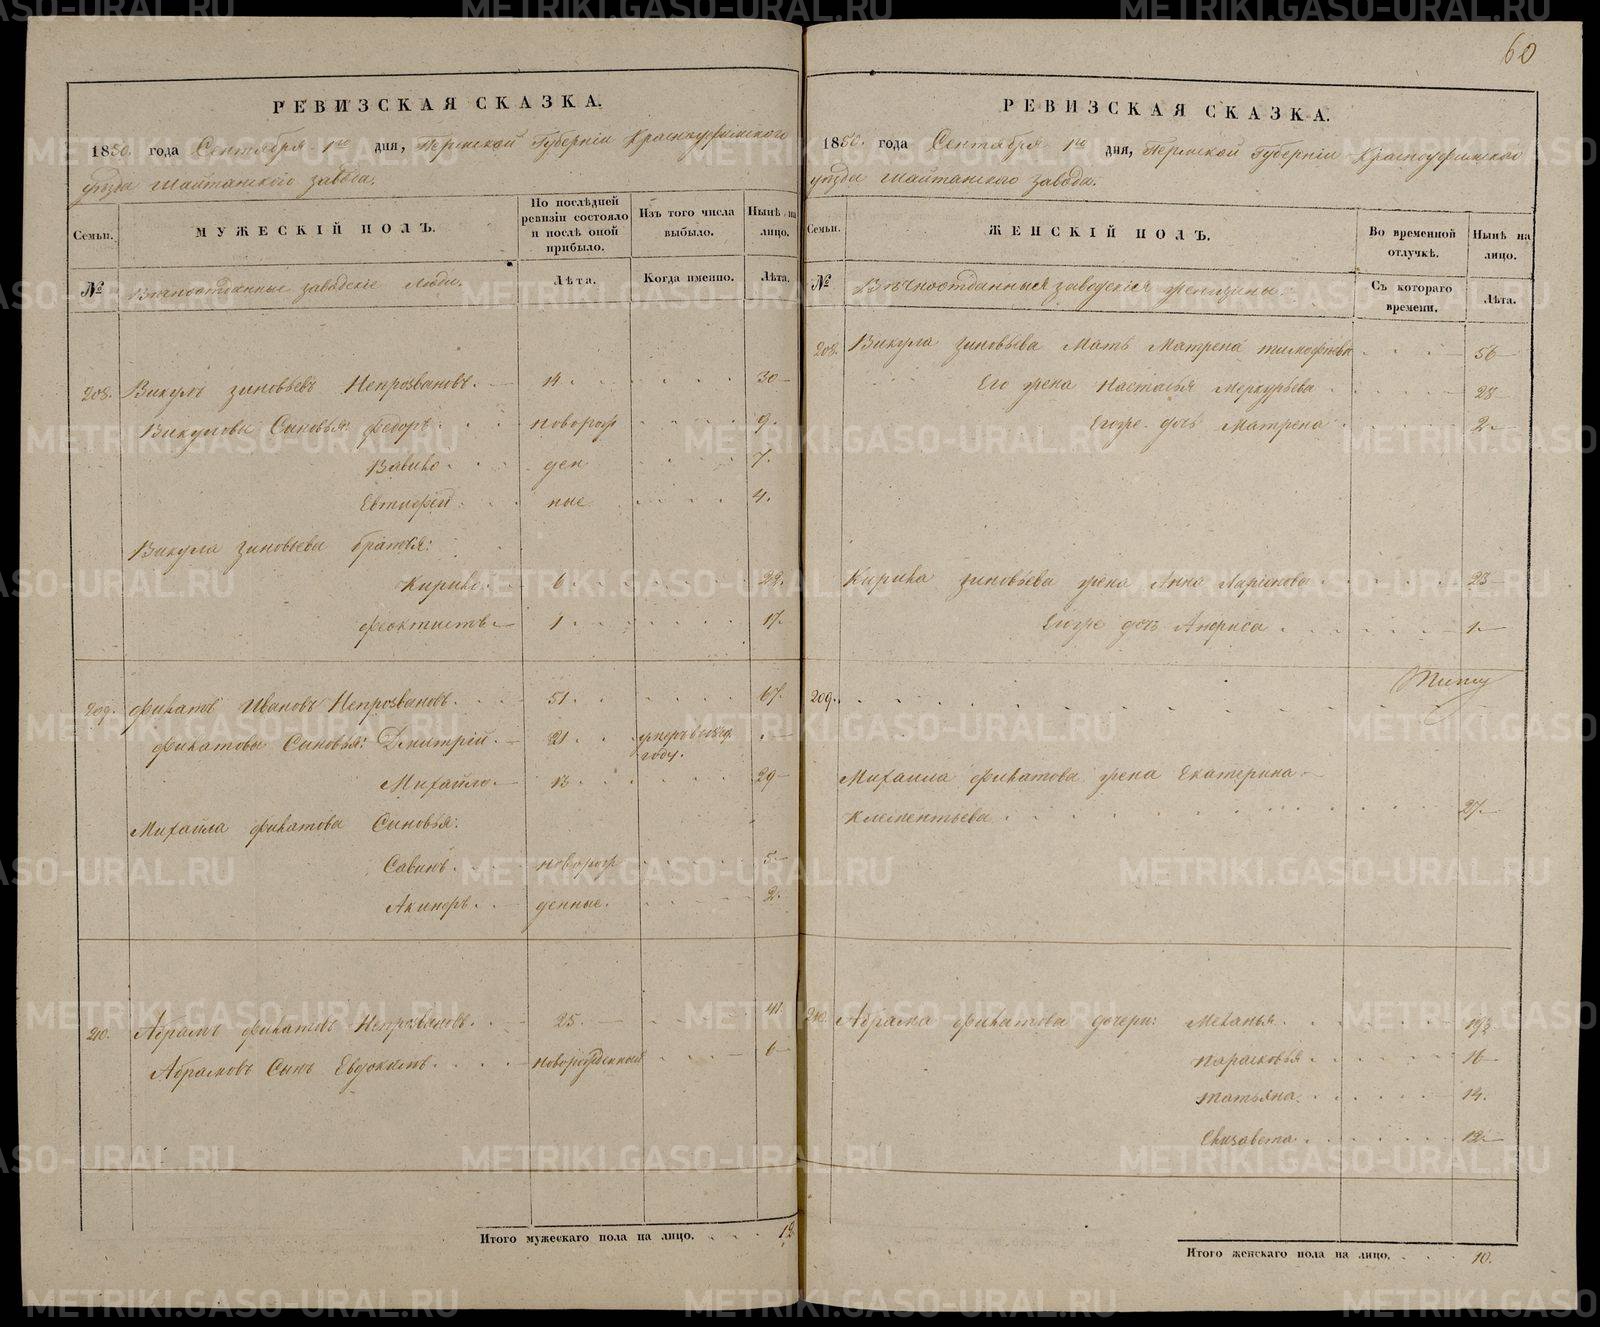 60
РЕВИЗСКАЯ СКАЗКА.
1850. года Сентября 1го дня, Пермской Губернiи Красноуфимского
уѣзда Шайтанского завода.
Семьи.
МУЖЕСКIЙ ПОЛЪ.
По послѣдней ревизiи состояло и послѣ оной прибыло.
Изъ того числа выбыло.
Нынѣ на лицо.
№
Вѣчноотданные заводскiе люди.
Лѣта.
Когда именно.
Лѣта.
208. Викулъ Зиновьевъ Непрозвановъ. 14. 30
Викуловы Сыновья: Федоръ. новорож 9.
Вавило. ден 7.
Евтифiй. ные 4.
Викула Зиновьева братья:
Кирикъ. 6. 22.
Феоктистъ. 1. 17.
209. Филатъ Ивановъ Непрозвановъ. 51. 67.
Филатовы Сыновья: Дмитрiй. 21. умеръ в
году.
Михайло. 13. 29
Михайла Филатова Сыновья:
Савинъ. новорож 5.
Акинфъ. денные. 2.
210. Абрамъ Филатовъ Непрозвановъ. 25. 41.
Абрамовъ Сынъ Евдокимъ. новорожденный 6
Итого мужескаго пола на лицо. 12
РЕВИЗСКАЯ СКАЗКА.
1850. года Сентября 1го дня, Пермской Губернiи Красноуфимского
уѣзда Шайтанского завода.
Семьи.
ЖЕНСКIЙ ПОЛЪ.
Во временной отлучкѣ.
Нынѣ на лицо.
№
Вѣчноотданныя заводскiя женщины.
Съ котораго времени.
Лѣта.
208. Викула Зиновьева Мать Матрена Тимофѣева 56
Его жена Настасья Меркурьева 28
Егоже дочь Матрена 2.
Кирика Зиновьева жена Анна Ларiонова 23
Егоже дочь Анфиса 1.
209.
Михаила Филатова жена Екатерина
Клементьева 27.
210. Абрама Филатова дочери: Меланья 19
Парасковья 16
Татьяна. 14.
Елизавета 12.
Итого женскаго пола на лицо. 10.
METRIKI.GASO-URAL.RU